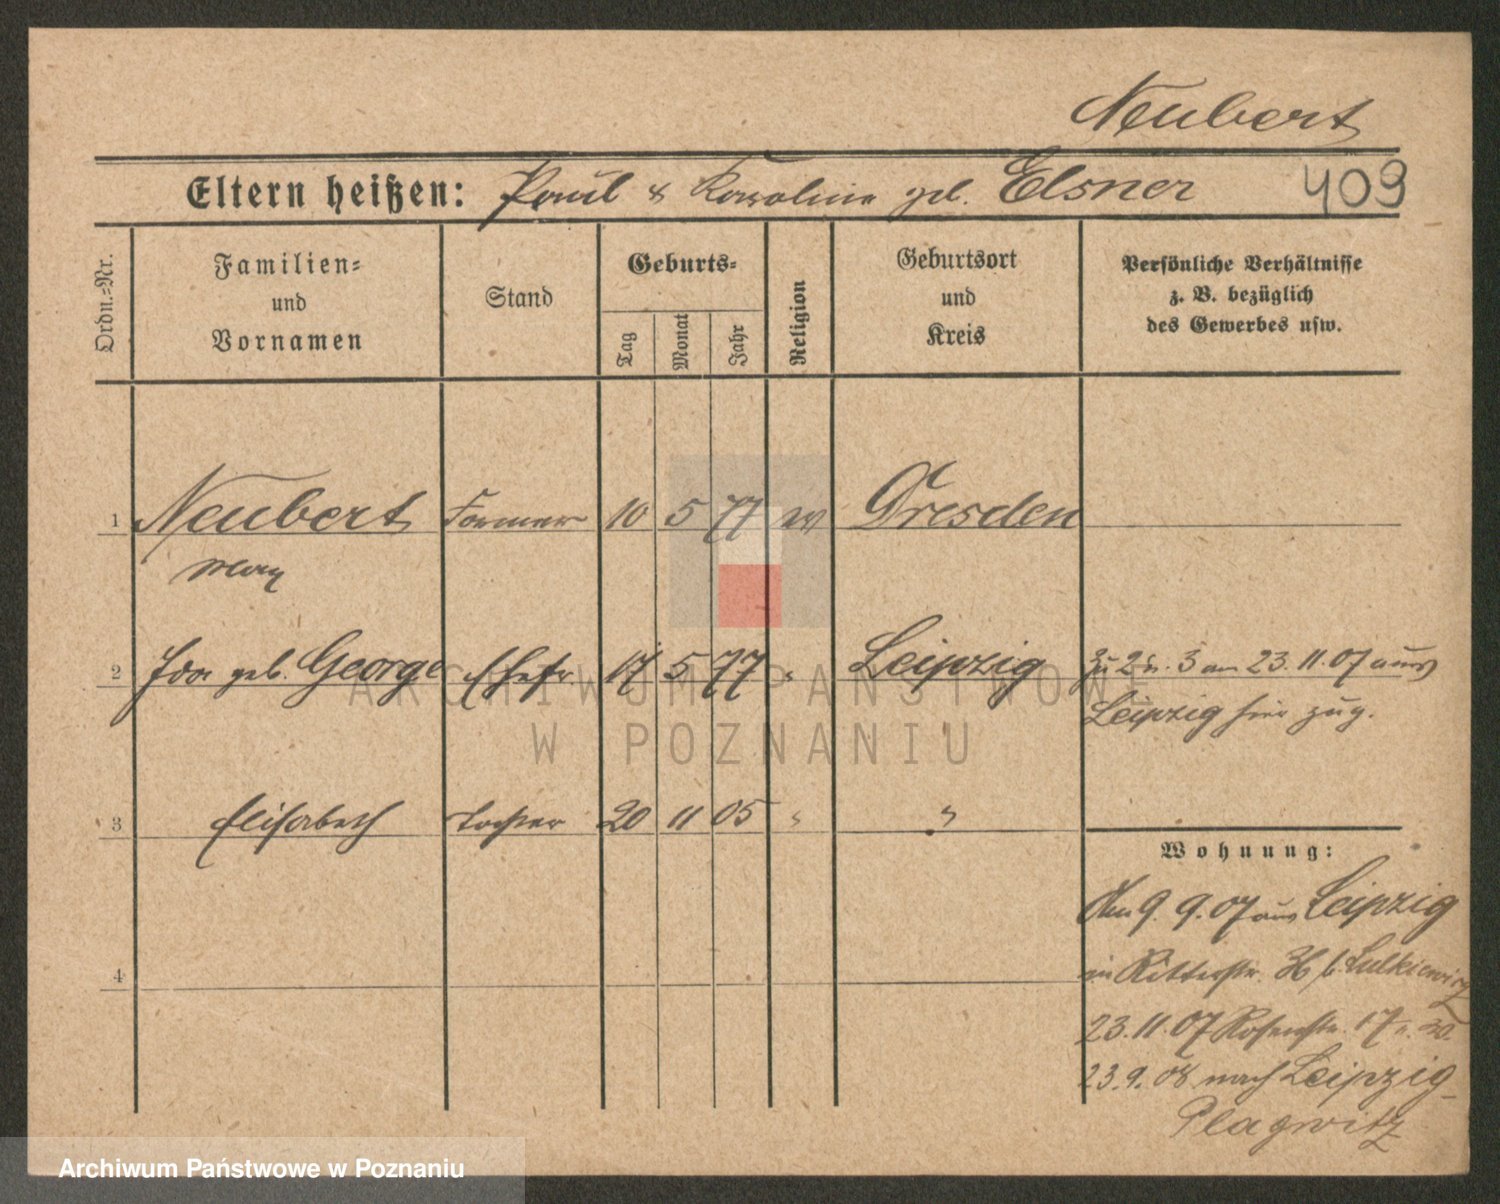 Neubert
Eltern heißen: Paul & Karoline geb. Elsner 409
Ordn.-Nr.
Familien-
und
Vornamen
Stand
Geburts-
Tag
Monat
Jahr
Religion
Geburtsort
und
Kreis
Persönliche Verhältnisse
z. B. bezüglich
des Gewerbes usw.
1 Neubert Former 10 5 77 ev Dresden
Max
2 Ida geb. George Ehefr. 17 5 77 " Leipzig Zu 2 u. 3 am 23.11.07 aus
Leipzig hier zug.
3 Elisabeth Tochter 20 11 05 " "
Wohnung:
Am 9. 9. 07 aus Leipzig
in Ritterstr. 36 b. Lulkiewicz
4
23.11.07 Rosenstr. 17
23.9.08 nach Leipzig-
Plagwitz
ARCHIWUM PAŃSTWOWE
W POZNANIU
Archiwum Państwowe w Poznaniu